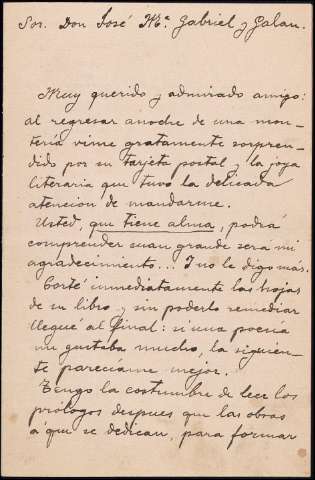 Sor. Don José Mª. Gabriel y Galan.
Muy querido y admirado amigo:
al regresar anoche de una mon-
tería vime gratamente sorpren-
dido por su tarjeta postal y la joya
literaria que tuvo la delicada
atencion de mandarme.
Usted, que tiene alma, podrá
comprender cuan grande será mi
agradecimiento... Y no le digo más.
Corté inmediatamente las hojas
de su libro y sin poderlo remediar
llegué al final: si una poesía
me gustaba mucho, la siguien-
te parecíame mejor.
Tengo la costumbre de leer los
prólogos despues que las obras
á que se dedican, para formar